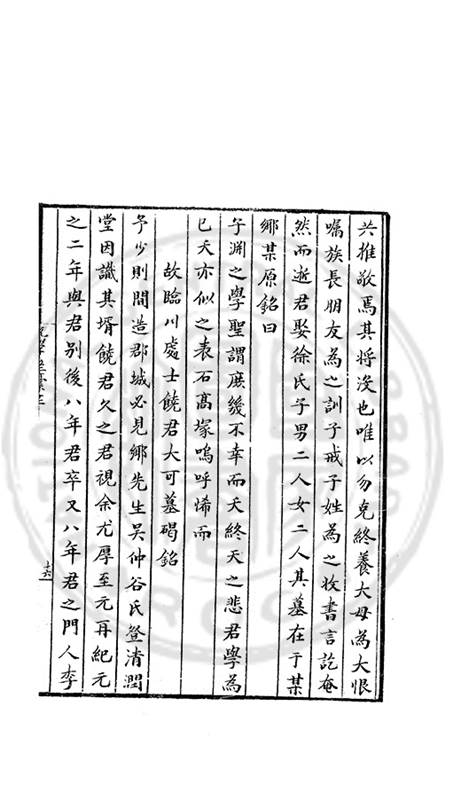 共推敬焉其将沒也唯以勿克終養大母為大恨
囑族長朋友為之訓子戒子姓為之牧書言訖奄
然而逝君娶徐氏子男二人女二人其墓在于某
鄉某原銘曰
子淵之學聖謂庶幾不幸而夭終天之悲君學為
己夭亦似之表石高塚嗚呼悕而
故臨川處士饒君大可墓碣銘
予少則間造郡城必見鄉先生吴仲谷氏登清潤
堂因識其壻饒君久之君視余尤厚至元再紀元
之二年與君別後八年君卒又八年君之門人李
十六